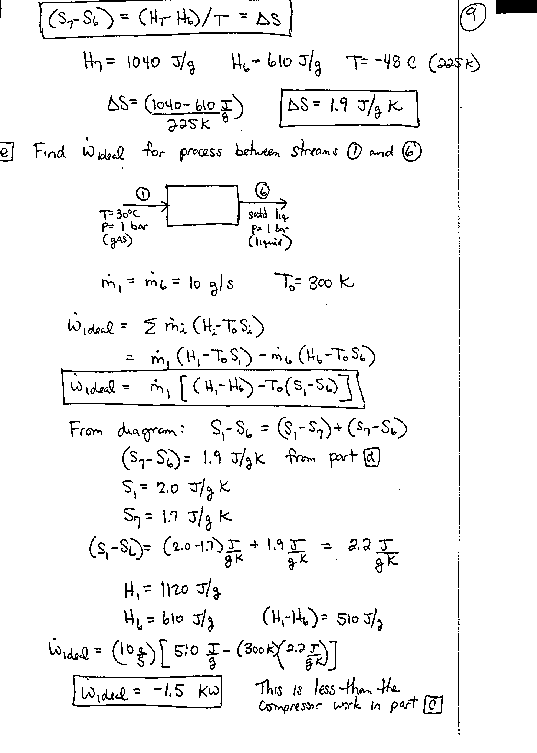 (S₇-S₆) = (H₇-H₆)/T = ΔS
9
H₇ = 1040 J/g H₆ = 610 J/g T = -48 C (225K)
ΔS = (1040-610 J/g)/225K ΔS = 1.9 J/g K
e Find Ẇideal for process between streams ① and ⑥
① ⑥
T=30°C
P=1 bar
(gas)
satd liq
P=1 bar
(liquid)
ṁ₁ = ṁ₆ = 10 g/s T₀ = 300 K
Ẇideal = Σ ṁᵢ (Hᵢ-T₀Sᵢ)
= ṁ₁ (H₁-T₀S₁) - ṁ₆ (H₆-T₀S₆)
Ẇideal = ṁ₁ [(H₁-H₆)-T₀(S₁-S₆)]
From diagram: S₁-S₆ = (S₁-S₇)+(S₇-S₆)
(S₇-S₆) = 1.9 J/gK from part d
S₁ = 2.0 J/g K
S₇ = 1.7 J/g K
(S₁-S₆) = (2.0-1.7) J/gK + 1.9 J/gK = 2.2 J/gK
H₁ = 1120 J/g
H₆ = 610 J/g (H₁-H₆) = 510 J/g
Ẇideal = (10 g/s) [510 J/g - (300K)(2.2 J/gK)]
Ẇideal = -1.5 KW This is less than the
compressor work in part c